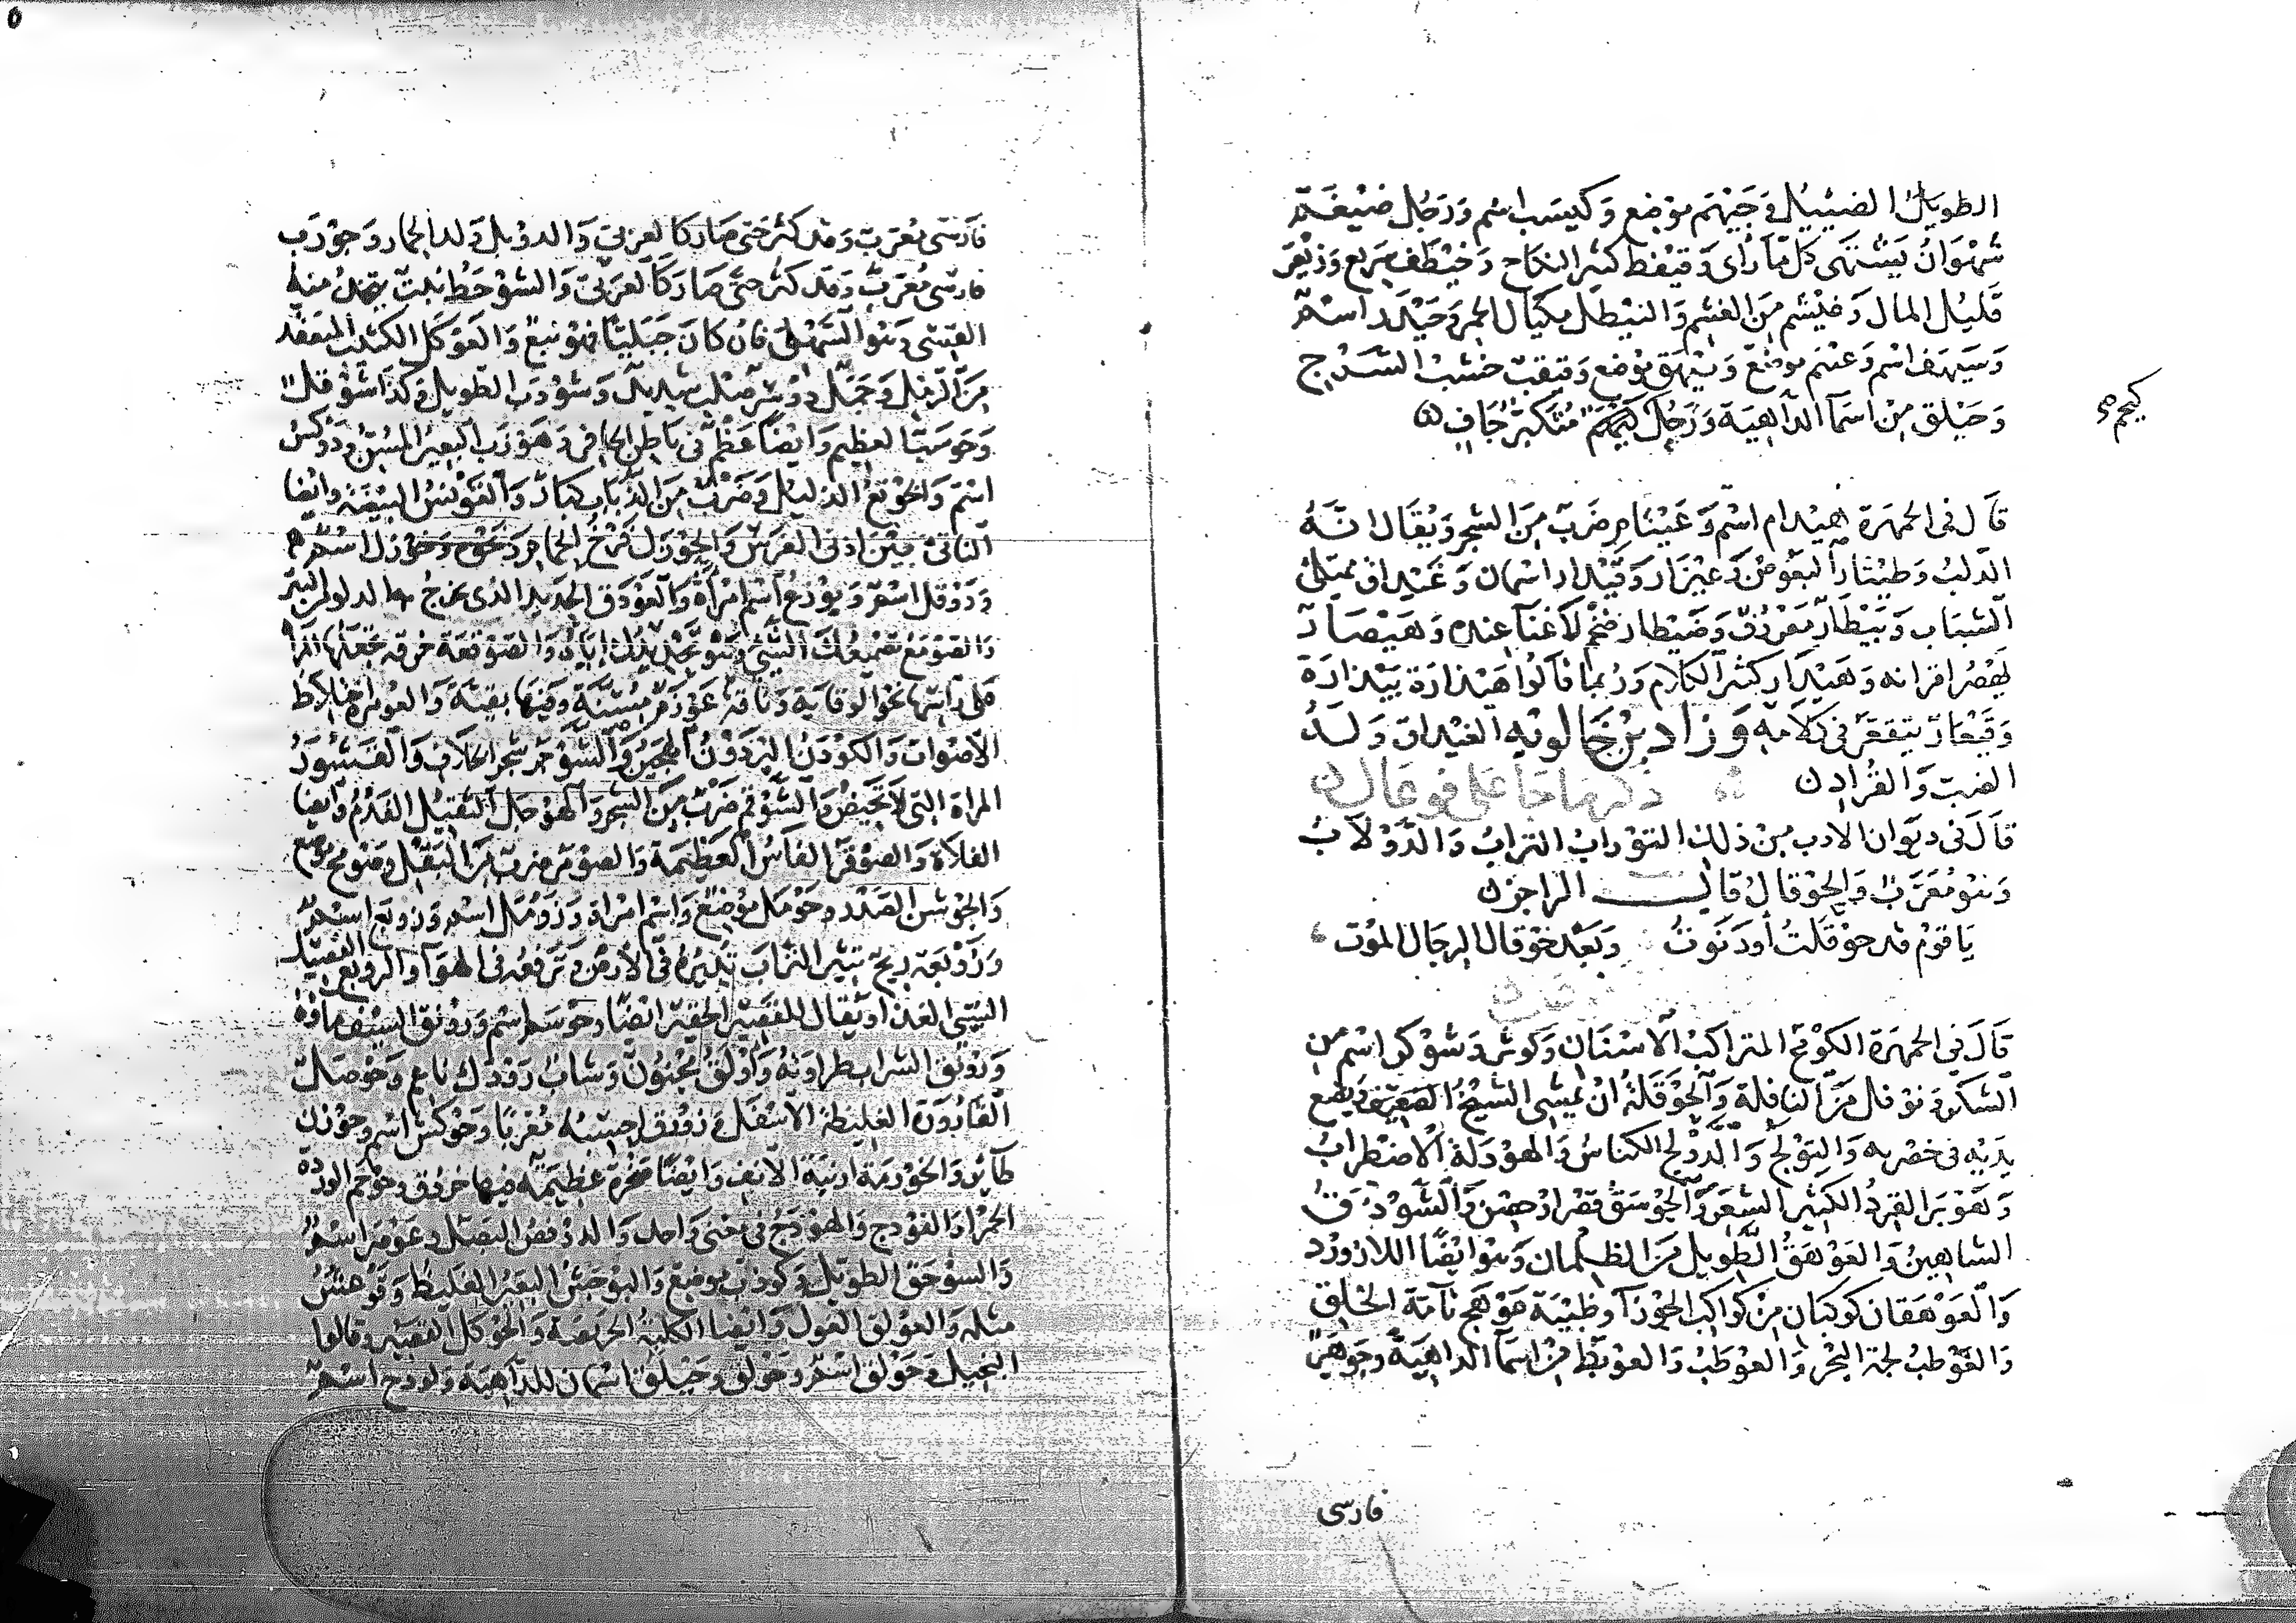 الطويل الضئيل وجيهم موضع وكيسب اسم ورجل ضيغم
شهوان يشتهي كل ما رأى وقيفط كثير النكاح وخيطف سريع وزيعر
قليل المال وغيشم من الغشم والنيطل مكيال الخمر وحيدر اسم
وسيهف اسم وعيهم موضع وبيهق موضع وقيقب خشب السرج
وحيلق من اسماء الداهية ورجل كيحم متكبر جاف
كيحم
قال في الجمهرة هيدام اسم وعيثام ضرب من الشجر ويقال انه
الدلب وطيثار البعوض وعيزار وقيدار اسمان وغيداق ممتلئ
الشباب وبيطار معروف وضيطار ضخم لا غناء عنده وهيصار
يهصر اقرانه وهيذار كثير الكلام وربما قالوا هيذارة بيذارة
وقيعار يتقعر في كلامه وزاد بن خالويه الغيداق ولد
الضب والقراد
ذكر ما جاء على فوعال
قال في ديوان الادب من ذلك التوراب التراب والدولاب
وهو معرب والحوقال قال الراجز
يا قوم قد حوقلت او دنوت وبعد حوقال الرجال الموت
قال في الجمهرة الكومح المتراكب الاسنان وكوثر وشوكر اسم من
الشكر ونوفل من النافلة والحوقلة ان يمشي الشيخ الضعيف ويضع
يديه في خصريه والتولج والدولج الكناس والهودلة الاضطراب
وهوبر القرد الكثير الشعر والجوسق قصر او حصن والشوذق
الشاهين والعوهق الطويل من الظلمان وهو ايضا اللازورد
والعوهقان كوكبان من كواكب الجوزاء وظبية عوهج تامة الخلق
والعوطب لجة البحر والعوطب والعوبط من اسماء الداهية وجوهر
فارسي
فارسي معرب وقد كثر حتى صار كالعربي والدوبل ولد الحمار وجورب
فارسي معرب وقد كثر حتى صار كالعربي والشوحط نبت يتخذ منه
القسي وهو السهلي فان كان جبليا فهو نبع والعوكل الكثيب المتعقد
من الرمل وجمل دوسر صلب شديد وشوذب الطويل وكذا شوقل
وحوشب العظيم وايضا عظم في باطن الحافر وهوزب البعير المسن ودوكس
اسم والخوتع الدليل وضرب من الذباب كبار والقونس البيضة وايضا
الناتئ بين اذني الفرس والجوزل فرخ الحمام
ودوقل اسم وبوزع اسم امرأة والعودق الحديد الذي يخرج به الدلو من البئر
والصومع تصميعك الشيء وهو تحديدك اياه والصوقعة خرقة تجعلها المرأة
على رأسها نحو الوقاية وناقة عوزم مسنة وفيها بقية والعومرة اختلاط
الاصوات والكودن البرذون الهجين والشوحر شجر الخلاف والقشور
المرأة التي لا تحيض والشوقم ضرب من الشجر والهوجل الثقيل الفدم وايضا
الفلاة والصوقر الفأس العظيمة والصومر ضرب من البقل وصومح موضع
والجوشن الصدر وحومل موضع واسم امرأة وزومل اسم وزوبع اسم
وزوبعة ريح تثير التراب تديره في الارض وترفعه في الهواء والروبع الفصيل
السيئ الغذاء ويقال للقصير الحقير ايضا وحوسم اسم ورونق السيف ماؤه
ورونق الشباب طراوته واولق مجنون وشاب رودك ناعم وحوصل
القارورة الغليظة الاسفل ونوفق احسبه معربا وحوكش اسم وحوزن
طائر والخورمة ارنبة الانف وايضا صخرة عظيمة فيها خروق وحوجم الوردة
الحمراء والفودج والهودج في معنى واحد والدوفص البصل وعومر اسم
والسوحق الطويل وكوذب موضع والبوحش البعير الغليظ وقوعش
مثله والعولق الغول وايضا الكلبة الحريصة والحوكل القصير وقالوا
البخيل وحولق اسم وخولق وحيلق اسمان للداهية ولوذح اسم